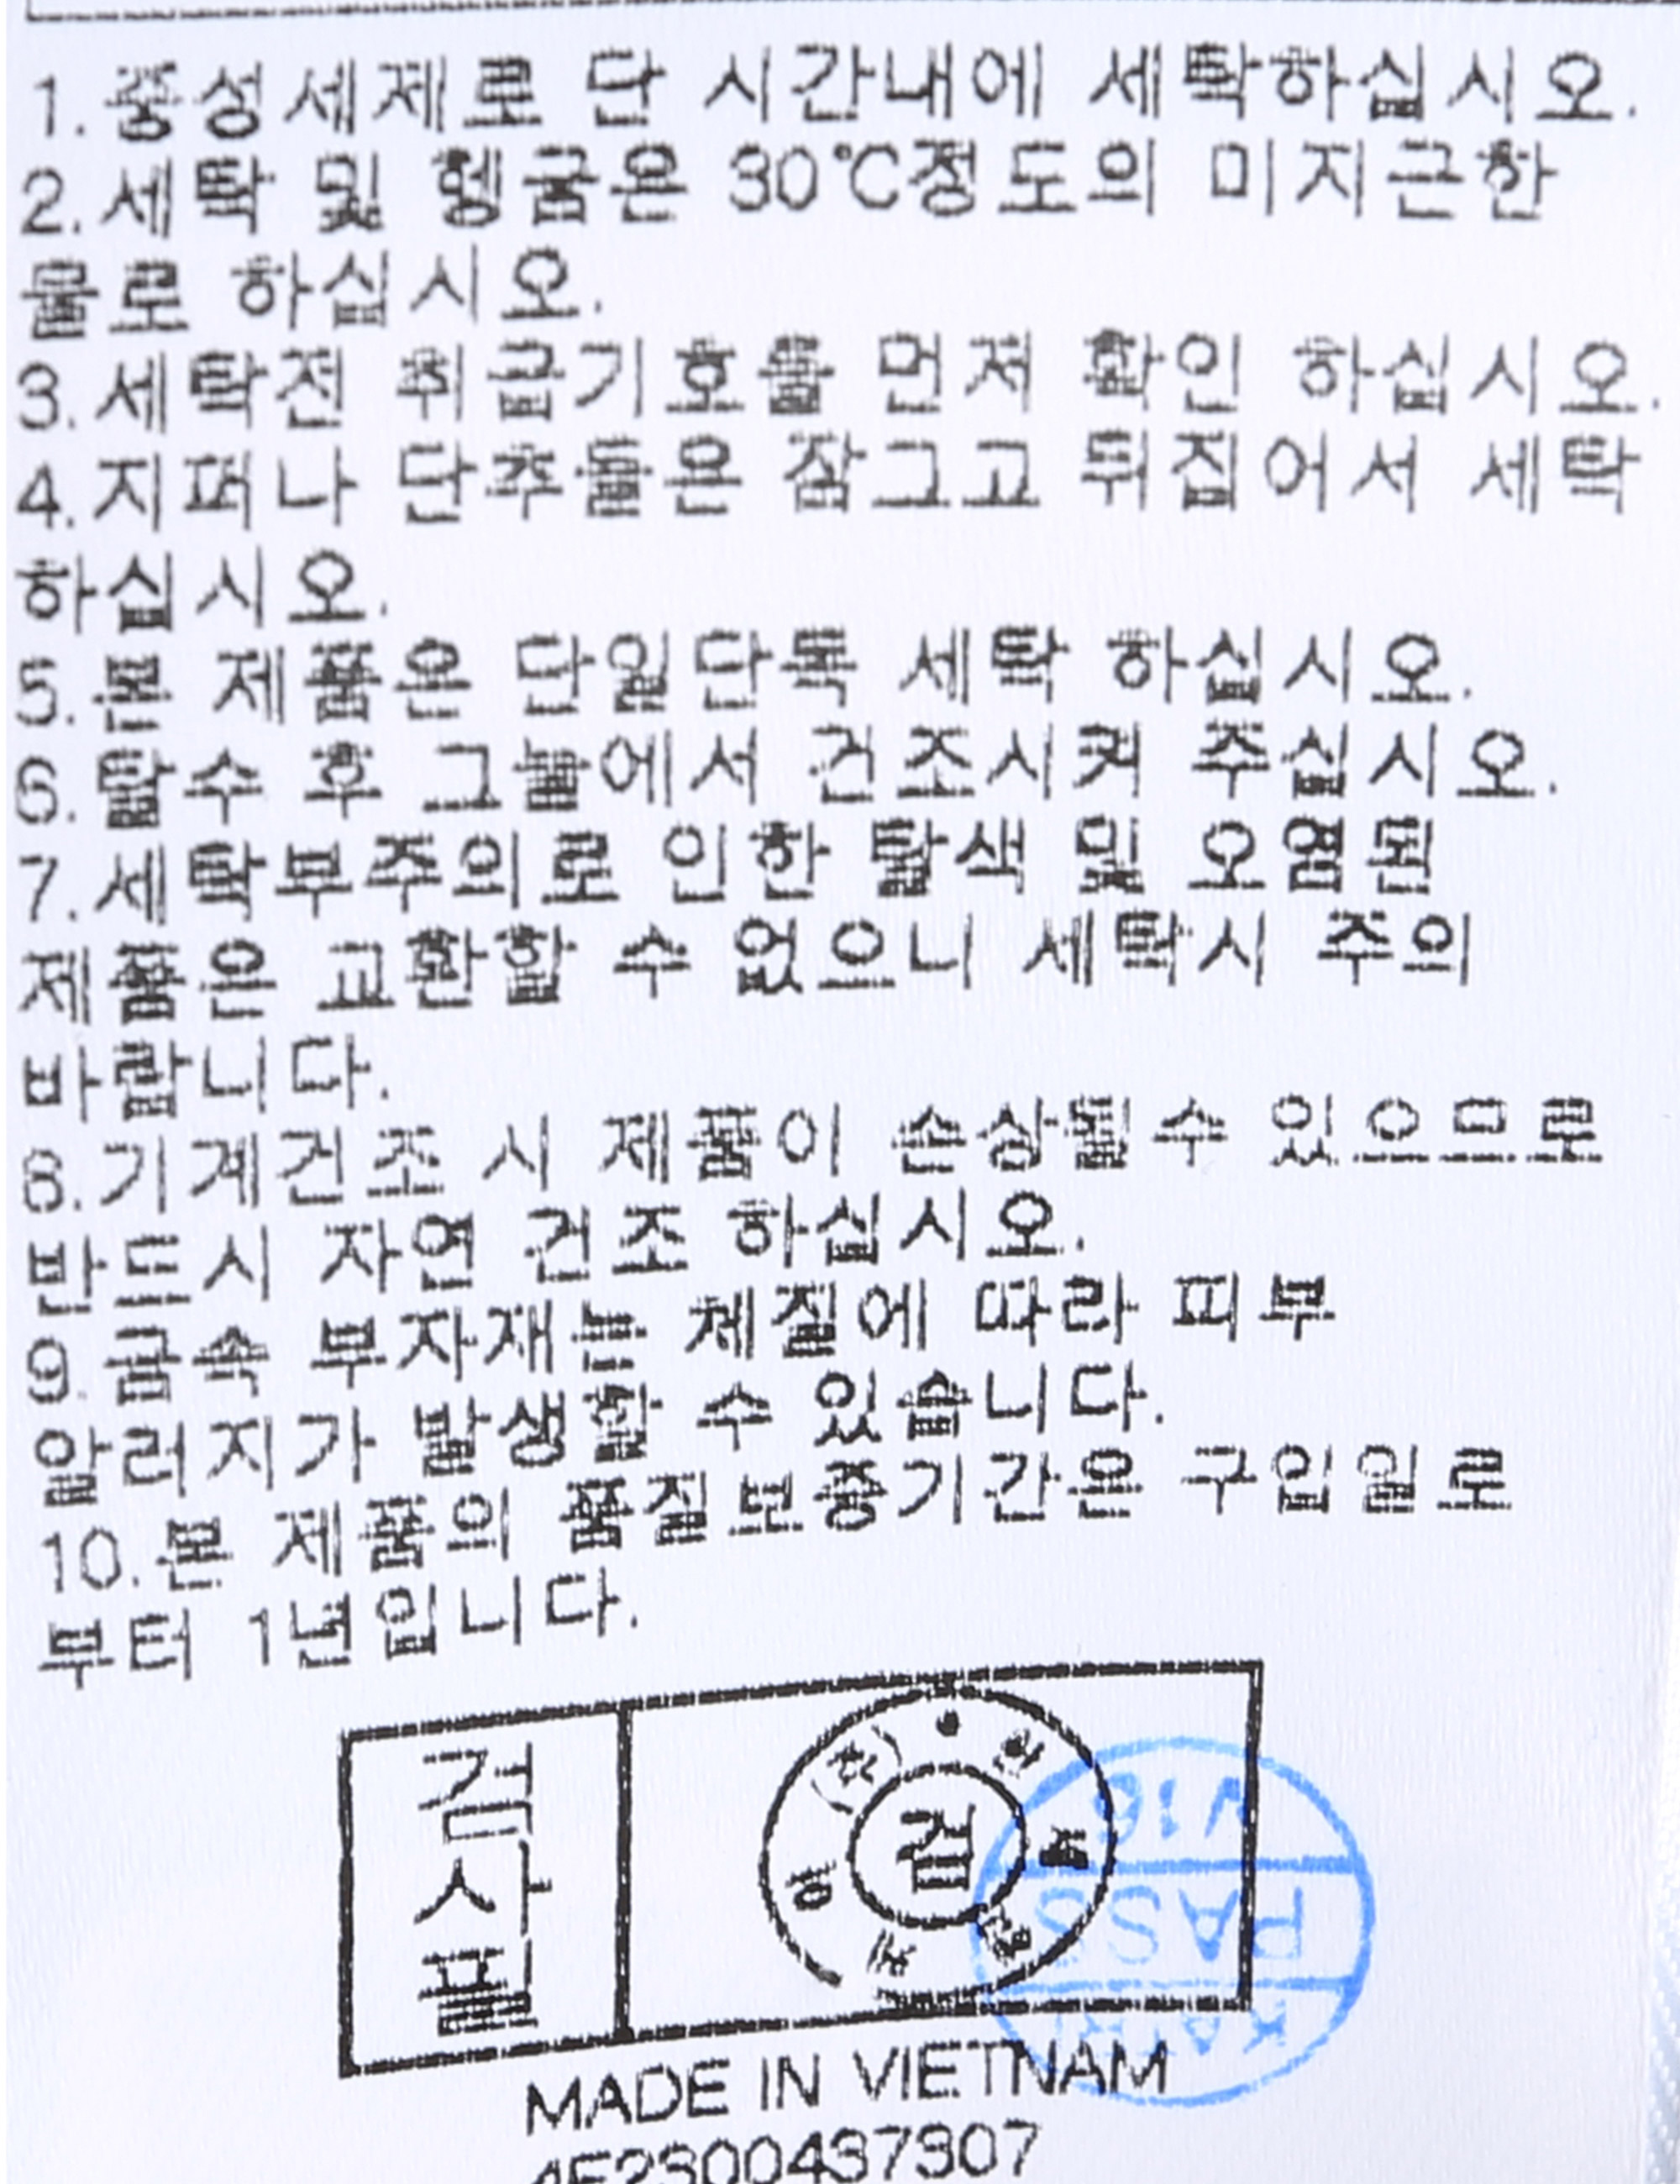 1. 중성세제로 단 시간내에 세탁하십시오.
2. 세탁 및 헹굼은 30℃정도의 미지근한
물로 하십시오.
3. 세탁전 취급기호를 먼저 확인 하십시오.
4. 지퍼나 단추들은 잠그고 뒤집어서 세탁
하십시오.
5. 본 제품은 단일단독 세탁 하십시오.
6. 탈수 후 그늘에서 건조시켜 주십시오.
7. 세탁부주의로 인한 탈색 및 오염된
제품은 교환할 수 없으니 세탁시 주의
바랍니다.
8. 기계건조 시 제품이 손상될수 있으므로
반드시 자연 건조 하십시오.
9. 금속 부자재는 체질에 따라 피부
알러지가 발생할 수 있습니다.
10. 본 제품의 품질보증기간은 구입일로
부터 1년입니다.
검사필
검
V16
PASS
MADE IN VIETNAM
4F2300437307